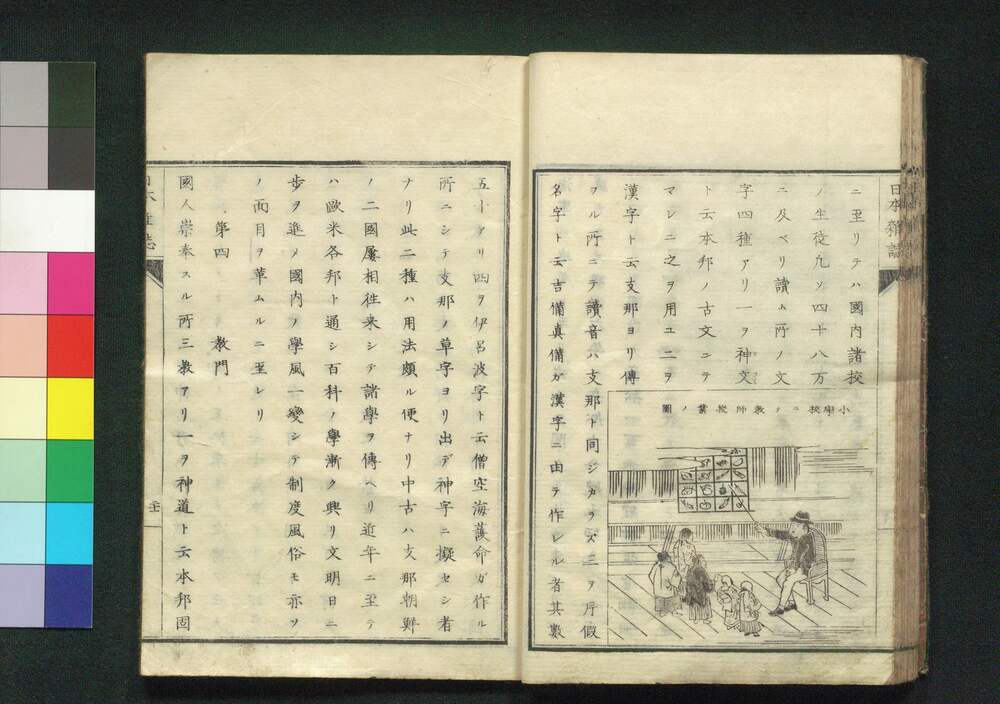 日本雜誌
ニ至リテハ國内諸校
ノ生徒凡ソ四十八万
ニ及ベリ讀ム所ノ文
字四種アリ一ヲ神文
ト云本邦ノ古文ニテ
マレニ之ヲ用ユ二ヲ
漢字ト云支那ヨリ傳
ワル所ニテ讀音ハ支那ト同ジカラズ三ヲ片假
名字ト云吉備真備ガ漢字ニ由テ作レル者其數
小學校ニテ教師授業ノ圖
五十アリ四ヲ伊呂波字ト云僧空海護命ガ作ル
所ニシテ支那ノ草字ヨリ出デ神字ニ擬セシ者
ナリ此二種ハ用法頗ル便ナリ中古ハ支那朝鮮
ノ二國屢相往来シテ諸學ヲ傳ヘリ近年ニ至テ
ハ歐米各邦ト通シ百科ノ學漸ク興リ文明日ニ
歩ヲ進メ國内ノ學風一變シテ制度風俗モ亦ソ
ノ面目ヲ革ムルニ至レリ
第四 教門
國人崇奉スル所三教アリ一ヲ神道ト云本邦固